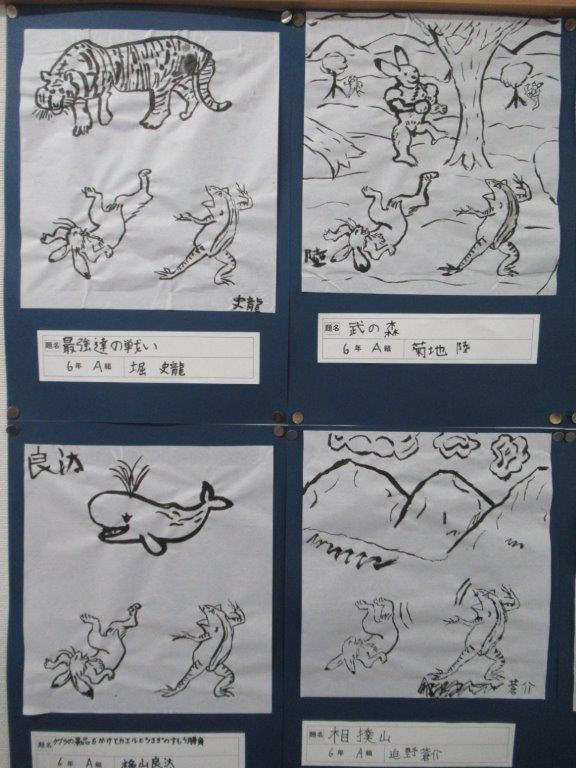 史龍
題名 最強達の戦い
6年 A組 堀 史龍
陸
題名 武の森
6年 A組 菊地 陸
良汰
題名 クジラの景品をかけてカエルとうさぎのすもう勝負
6年 A組 横山良汰
蒼介
題名 相撲山
6年 A組 迫野蒼介